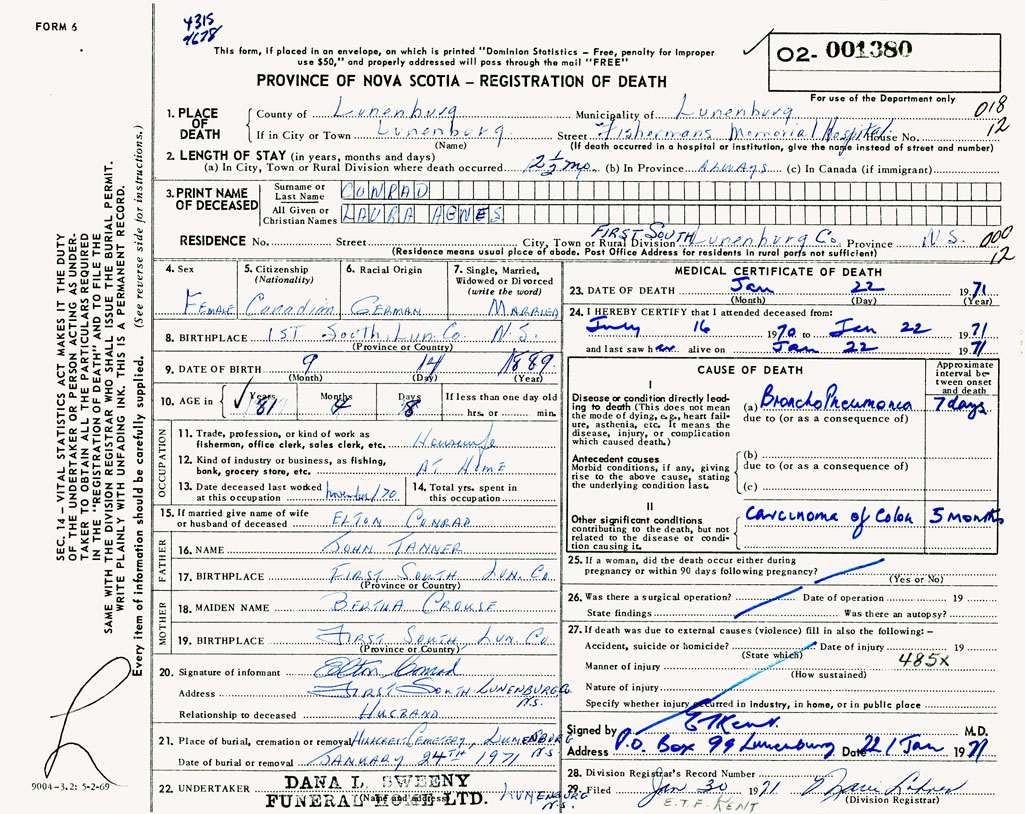 FORM 6
4315
4678
This form, if placed in an envelope, on which is printed "Dominion Statistics – Free, penalty for improper
use $50," and properly addressed will pass through the mail "FREE"
PROVINCE OF NOVA SCOTIA – REGISTRATION OF DEATH
O2- 001380
For use of the Department only
1. PLACE OF DEATH
County of Lunenburg Municipality of Lunenburg 018
If in City or Town Lunenburg Street Fishermans Memorial Hospital House No. 12
(Name) (If death occurred in a hospital or institution, give the name instead of street and number)
2. LENGTH OF STAY (in years, months and days)
(a) In City, Town or Rural Division where death occurred 2 1/2 mo. (b) In Province ALWAYS (c) In Canada (if immigrant)
3. PRINT NAME OF DECEASED
Surname or Last Name CONRAD
All Given or Christian Names LAURA AGNES
RESIDENCE No. Street City, Town or Rural Division FIRST SOUTH Lunenburg Co. Province N.S. 000
(Residence means usual place of abode. Post Office Address for residents in rural parts not sufficient) 12
4. Sex Female
5. Citizenship (Nationality) Canadian
6. Racial Origin German
7. Single, Married, Widowed or Divorced (write the word) Married
8. BIRTHPLACE 1ST South, Lun. Co. N.S.
(Province or Country)
9. DATE OF BIRTH 9 14 1889
(Month) (Day) (Year)
10. AGE in Years 81 Months 4 Days 8 If less than one day old
hrs. or min.
OCCUPATION
11. Trade, profession, or kind of work as
fisherman, office clerk, sales clerk, etc. Housewife
12. Kind of industry or business, as fishing,
bank, grocery store, etc. AT Home
13. Date deceased last worked
at this occupation November/70
14. Total yrs. spent in
this occupation
15. If married give name of wife
or husband of deceased ELTON CONRAD
FATHER
16. NAME JOHN TANNER
17. BIRTHPLACE FIRST SOUTH LUN. CO
(Province or Country)
MOTHER
18. MAIDEN NAME BERTHA CROUSE
19. BIRTHPLACE FIRST SOUTH, LUN. CO.
(Province or Country)
20. Signature of informant Elton Conrad
Address FIRST SOUTH LUNENBURG Co
N.S.
Relationship to deceased HUSBAND
21. Place of burial, cremation or removal HILLCREST CEMETERY, LUNENBURG
N.S.
Date of burial or removal JANUARY 24TH, 1971
22. UNDERTAKER DANA L. SWEENY
FUNERAL HOME LTD. LUNENBURG
(Name and address) N.S.
MEDICAL CERTIFICATE OF DEATH
23. DATE OF DEATH Jan 22 1971
(Month) (Day) (Year)
24. I HEREBY CERTIFY that I attended deceased from:
July 16 1970 to Jan 22 1971
and last saw her alive on Jan 22 1971
CAUSE OF DEATH
Approximate interval between onset and death
I
Disease or condition directly leading to death (This does not mean the mode of dying, e.g., heart failure, asthenia, etc. It means the disease, injury, or complication which caused death.)
(a) BronchoPneumonia 7 days
due to (or as a consequence of)
Antecedent causes
Morbid conditions, if any, giving rise to the above cause, stating the underlying condition last.
(b)
due to (or as a consequence of)
(c)
II
Other significant conditions contributing to the death, but not related to the disease or condition causing it.
Carcinoma of Colon 5 months
25. If a woman, did the death occur either during
pregnancy or within 90 days following pregnancy?
(Yes or No)
26. Was there a surgical operation? Date of operation 19
State findings Was there an autopsy?
27. If death was due to external causes (violence) fill in also the following: –
Accident, suicide or homicide? Date of injury 19
(State which) 485x
Manner of injury (How sustained)
Nature of injury
Specify whether injury occurred in industry, in home, or in public place
Signed by E T Kent. M.D.
Address P.O. Box 99 Lunenburg Date 22/Jan 1971
28. Division Registrar's Record Number
29. Filed Jan 30 1971
E.T.F. KENT (Division Registrar)
SEC. 14 – VITAL STATISTICS ACT MAKES IT THE DUTY
OF THE UNDERTAKER OR PERSON ACTING AS UNDER-
TAKER TO OBTAIN ALL THE PARTICULARS REQUIRED
IN THE "REGISTRATION OF DEATH" AND TO FILE THE
SAME WITH THE DIVISION REGISTRAR WHO SHALL ISSUE THE BURIAL PERMIT.
WRITE PLAINLY WITH UNFADING INK. THIS IS A PERMANENT RECORD.
Every item of information should be carefully supplied. (See reverse side for instructions.)
9004-3.2: 5-2-69